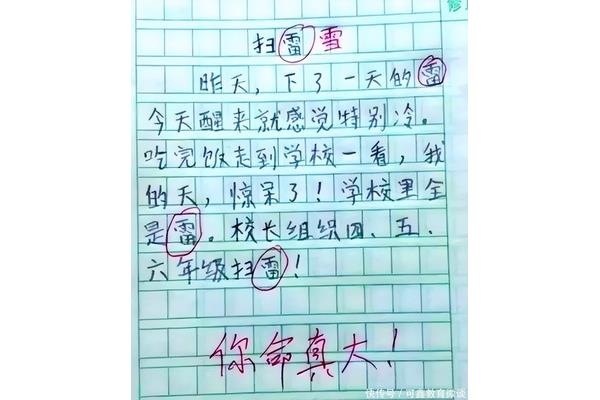 扫雷雪
昨天，下了一天的雷
今天醒来就感觉特别冷。
吃完饭走到学校一看，我
的天，惊呆了！学校里全
是雷。校长组织四、五、
六年级扫雷！
你命真大！
快传号/可鑫教育微谈